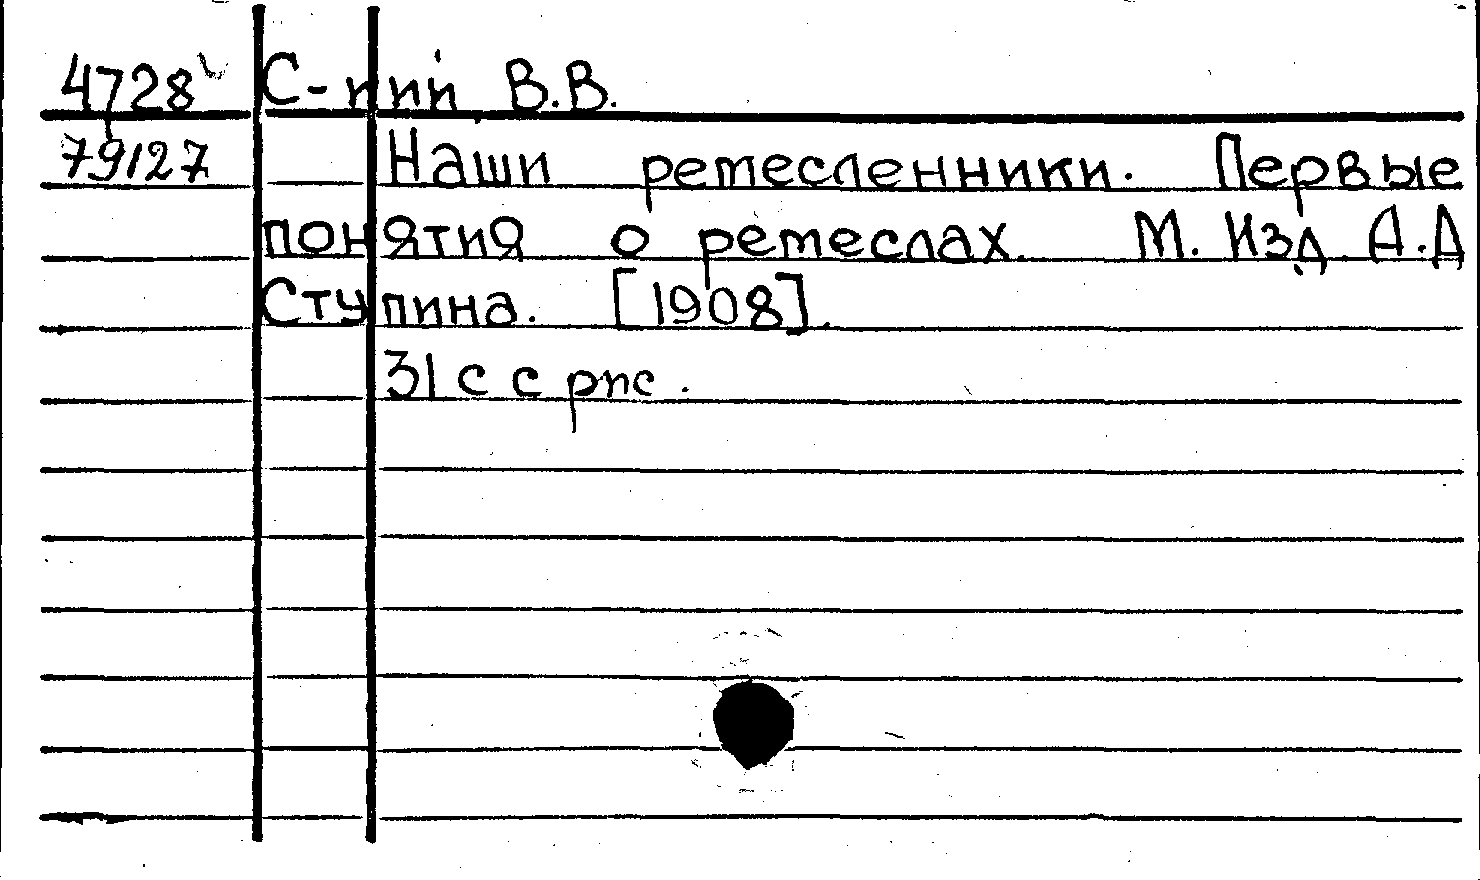 4728 С-кий В.В.
79127 Наши ремесленники. Первые
понятия о ремеслах. М. Изд. А.Д
Ступина. [1908].
31 с с рис.